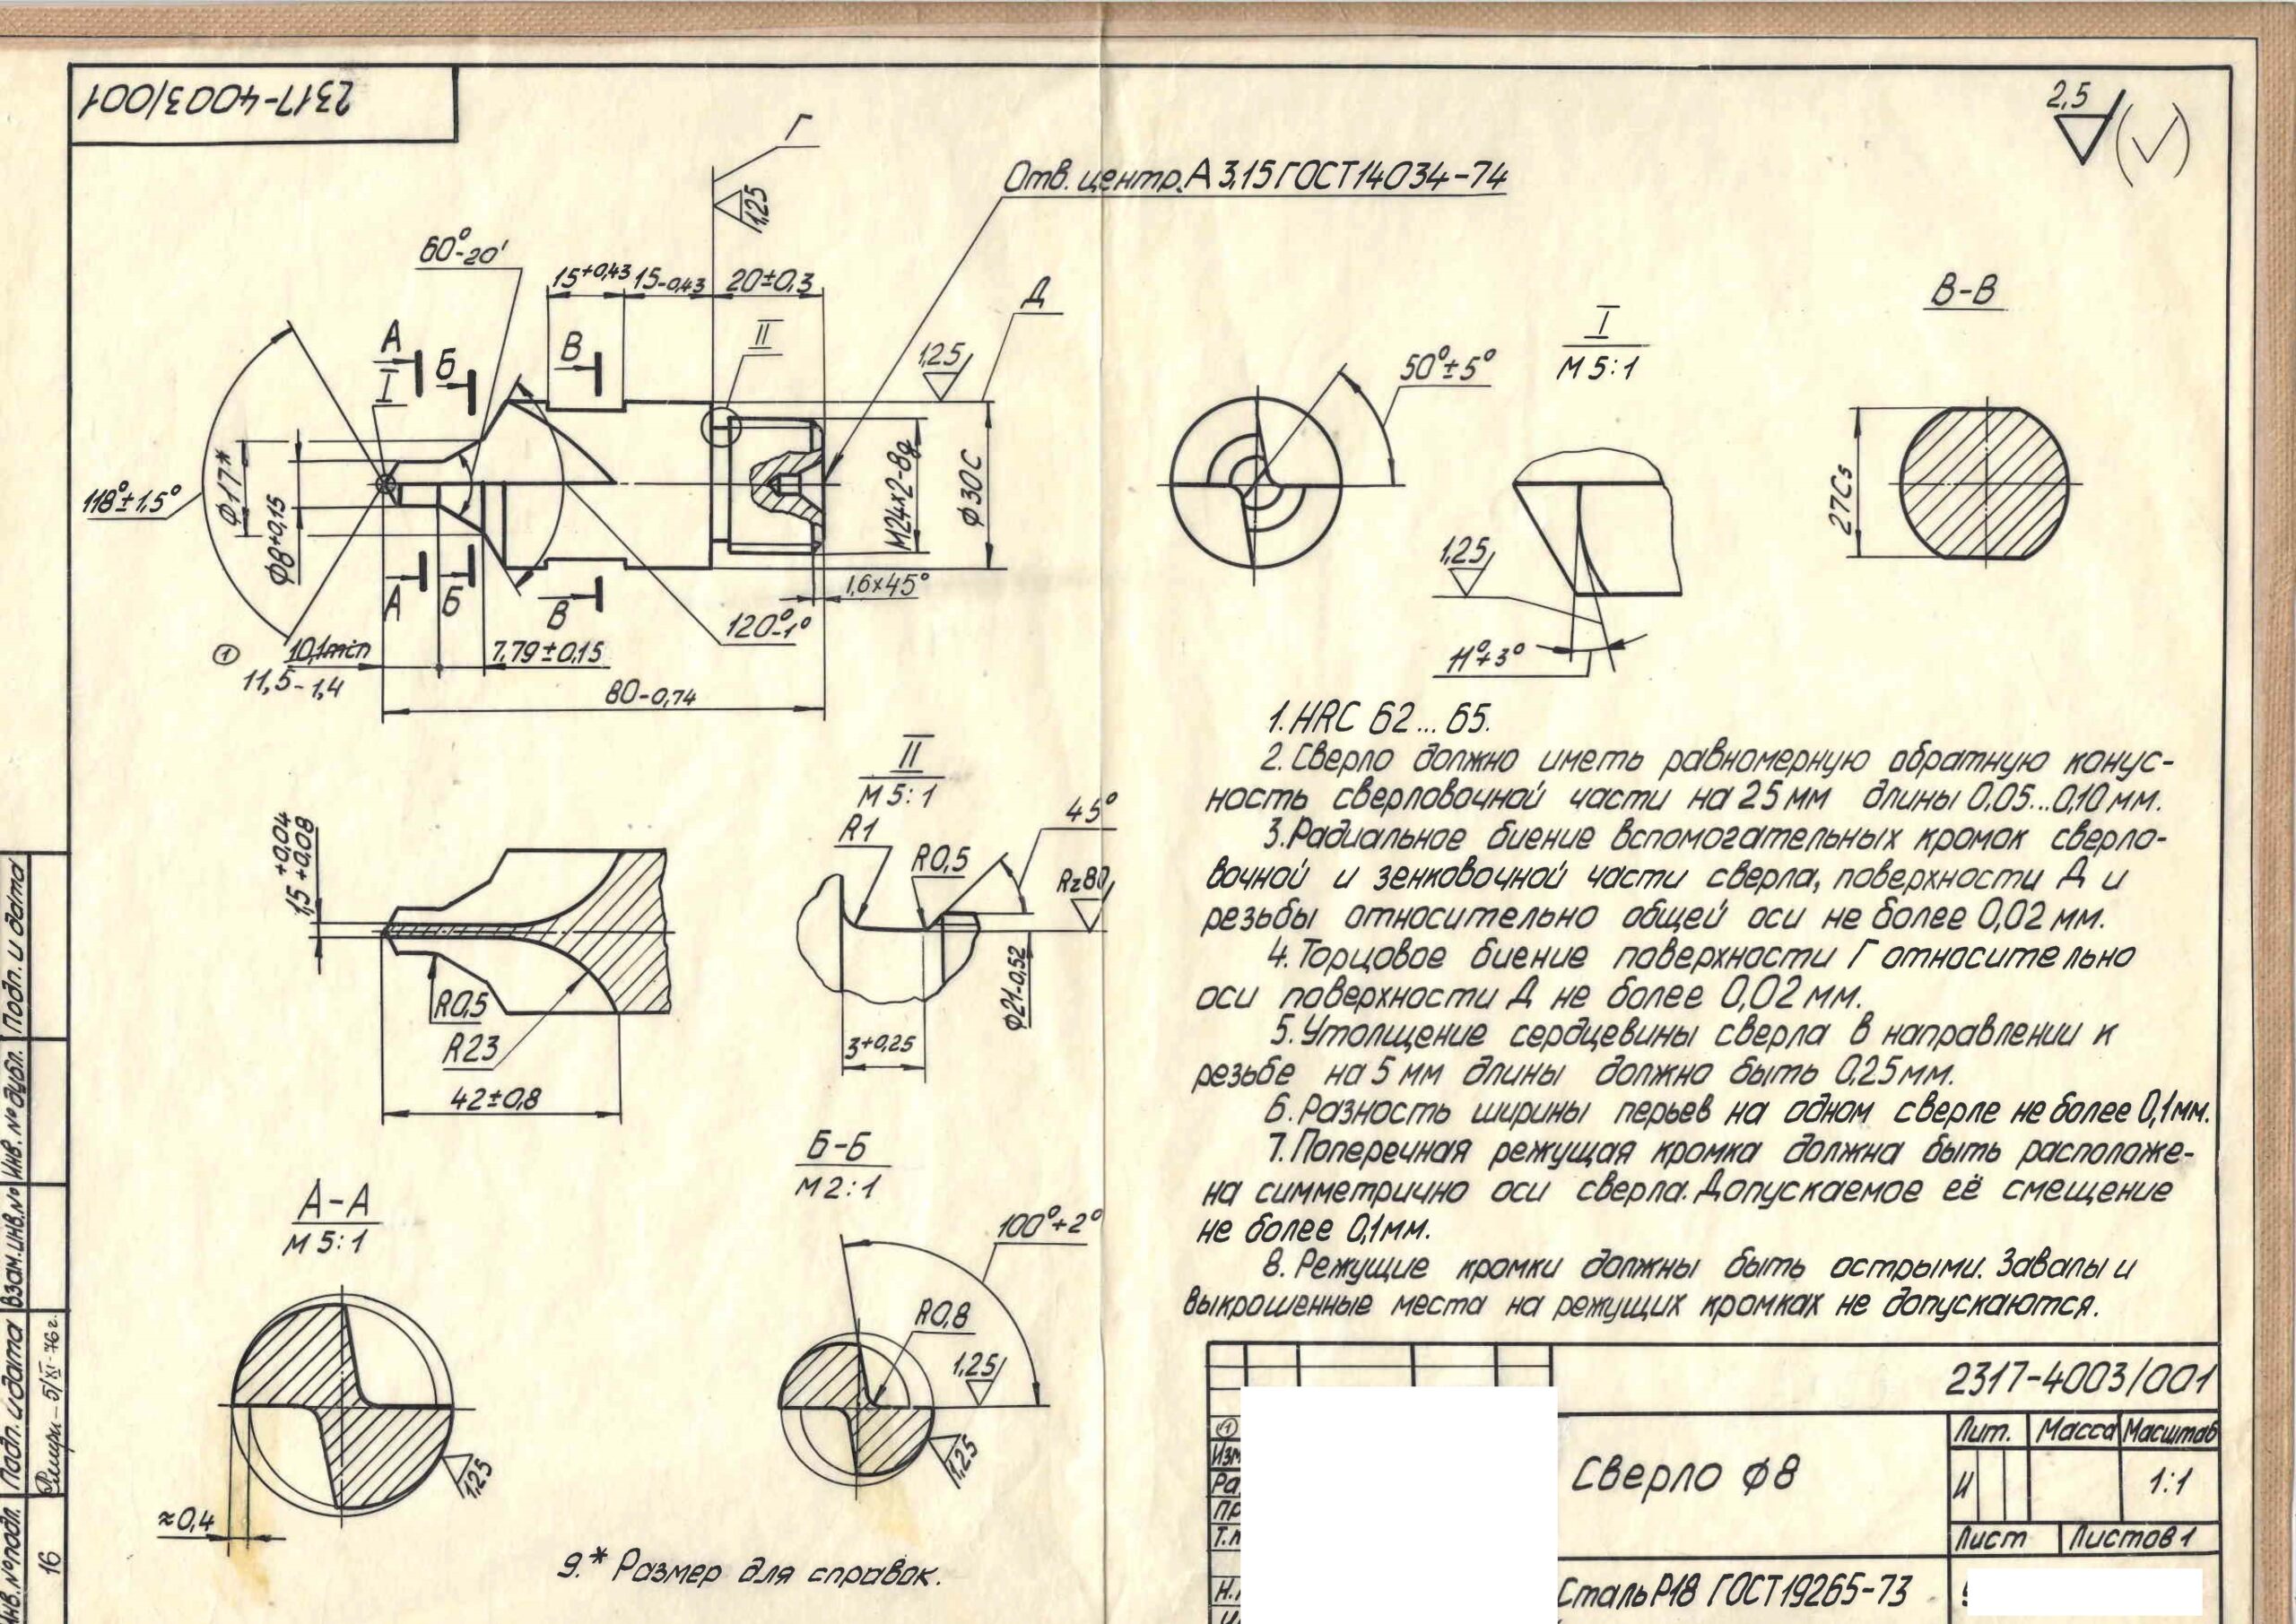 2317-4003/001
2,5
Г
1,25
Отв. центр. А 3,15 ГОСТ 14034-74
60°-20'
15+0,43
15-0,43
20±0,3
Д
А
Б
I
В
II
1,25
118°±1,5°
Ф17*
Ф8+0,15
М24х2-8g
Ф30С
А
Б
В
1,6х45°
120°-1°
① 10,1min
11,5-1,4
7,79±0,15
80-0,74
50°±5°
I
М 5:1
1,25
11°+3°
В-В
27С5
II
М 5:1
R1
R0,5
45°
Rz80
Ф21-0,52
3+0,25
1,5 +0,04
+0,08
R0,5
R23
42±0,8
А-А
М 5:1
1,25
≈0,4
Б-Б
М 2:1
100°+2°
R0,8
1,25
1,25
9.* Размер для справок.
1. HRC 62...65.
2. Сверло должно иметь равномерную обратную конус-
ность сверловочной части на 25 мм длины 0,05...0,10 мм.
3. Радиальное биение вспомогательных кромок сверло-
вочной и зенковочной части сверла, поверхности Д и
резьбы относительно общей оси не более 0,02 мм.
4. Торцовое биение поверхности Г относительно
оси поверхности Д не более 0,02 мм.
5. Утолщение сердцевины сверла в направлении к
резьбе на 5 мм длины должно быть 0,25 мм.
6. Разность ширины перьев на одном сверле не более 0,1 мм.
7. Поперечная режущая кромка должна быть расположе-
на симметрично оси сверла. Допускаемое её смещение
не более 0,1 мм.
8. Режущие кромки должны быть острыми. Завалы и
выкрошенные места на режущих кромках не допускаются.
2317-4003/001
Сверло Ф8
Лит. Масса Масштаб
И 1:1
Лист Листов 1
Сталь Р18 ГОСТ 19265-73
①
Изм
Ра
Пр
Т.к
Н.
Подп. и дата
Инв. № дубл.
Взам. инв. №
Подп. и дата
5/XI-76г.
Инв. № подл.
16